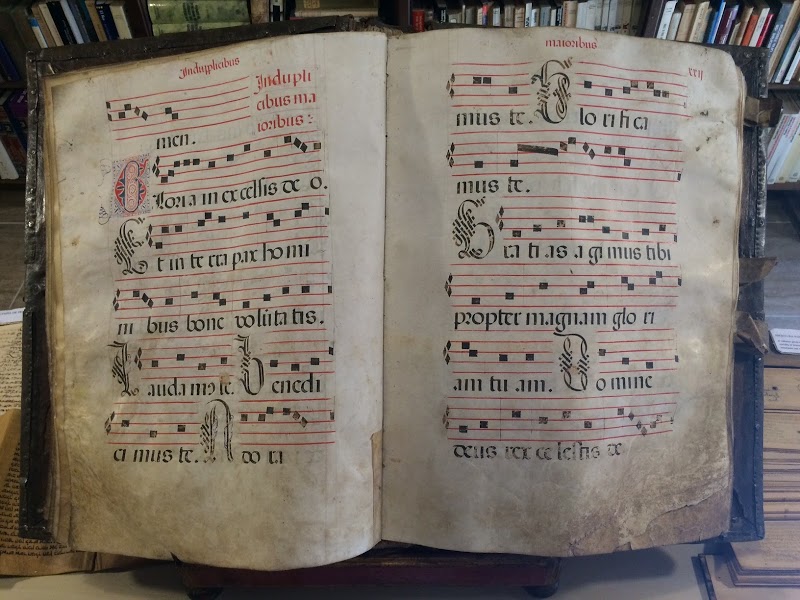 Induplicibus
Indupli
cibus ma
ioribus:
men.
Gloria in excelsis de o.
Et in te rra pax ho mi
ni bus bone volūta tis.
Lauda mo te. Benedi
ci mus te. Ado ra
maioribus.
xxij
mus te. Glo ri fi ca
mus te.
Gra ti as a gi mus tibi
propter magnam glo ri
am tu am. Domine
deus rex ce lestis de